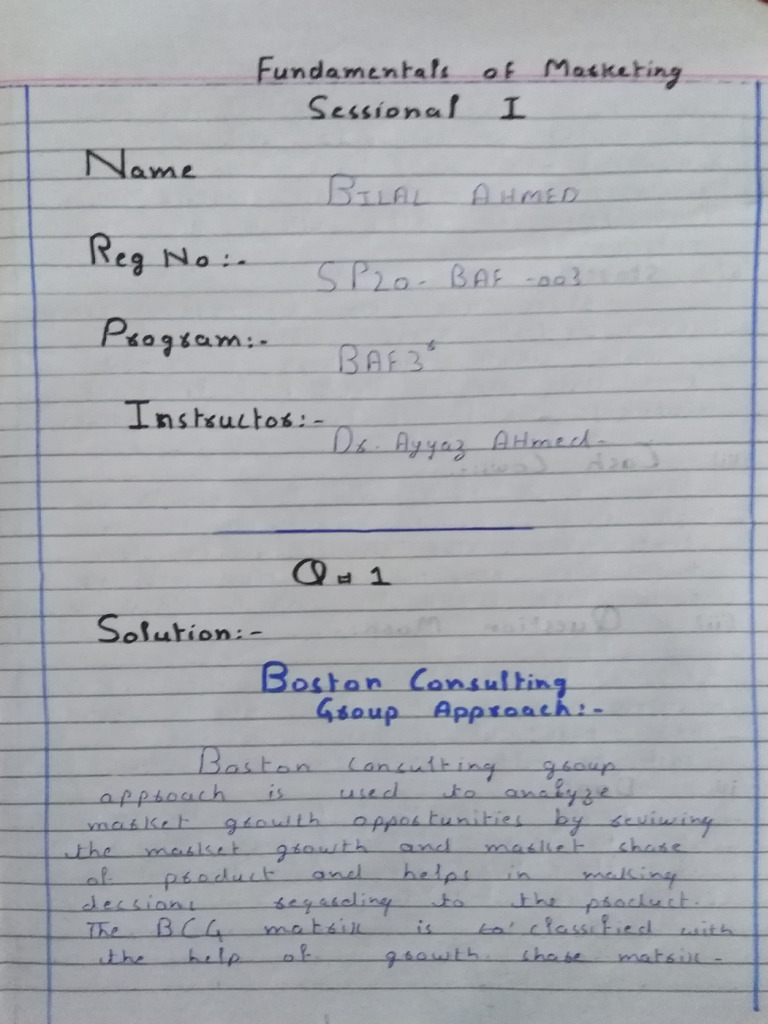 Fundamentals of Marketing
Sessional I
Name
BILAL AHMED
Reg No:-
SP20-BAF-003
Program:-
BAF3
Instructor:-
Dr. Ayyaz AHmed-
Q # 1
Solution:-
Boston Consulting
Group Approach:-
Boston Consulting group
approach is used to analyze
market growth opportunities by reviwing
the market growth and market share
of product and helps in making
decsions regarding to the product.
The BCG matrix is classified with
the help of growth share matrix-